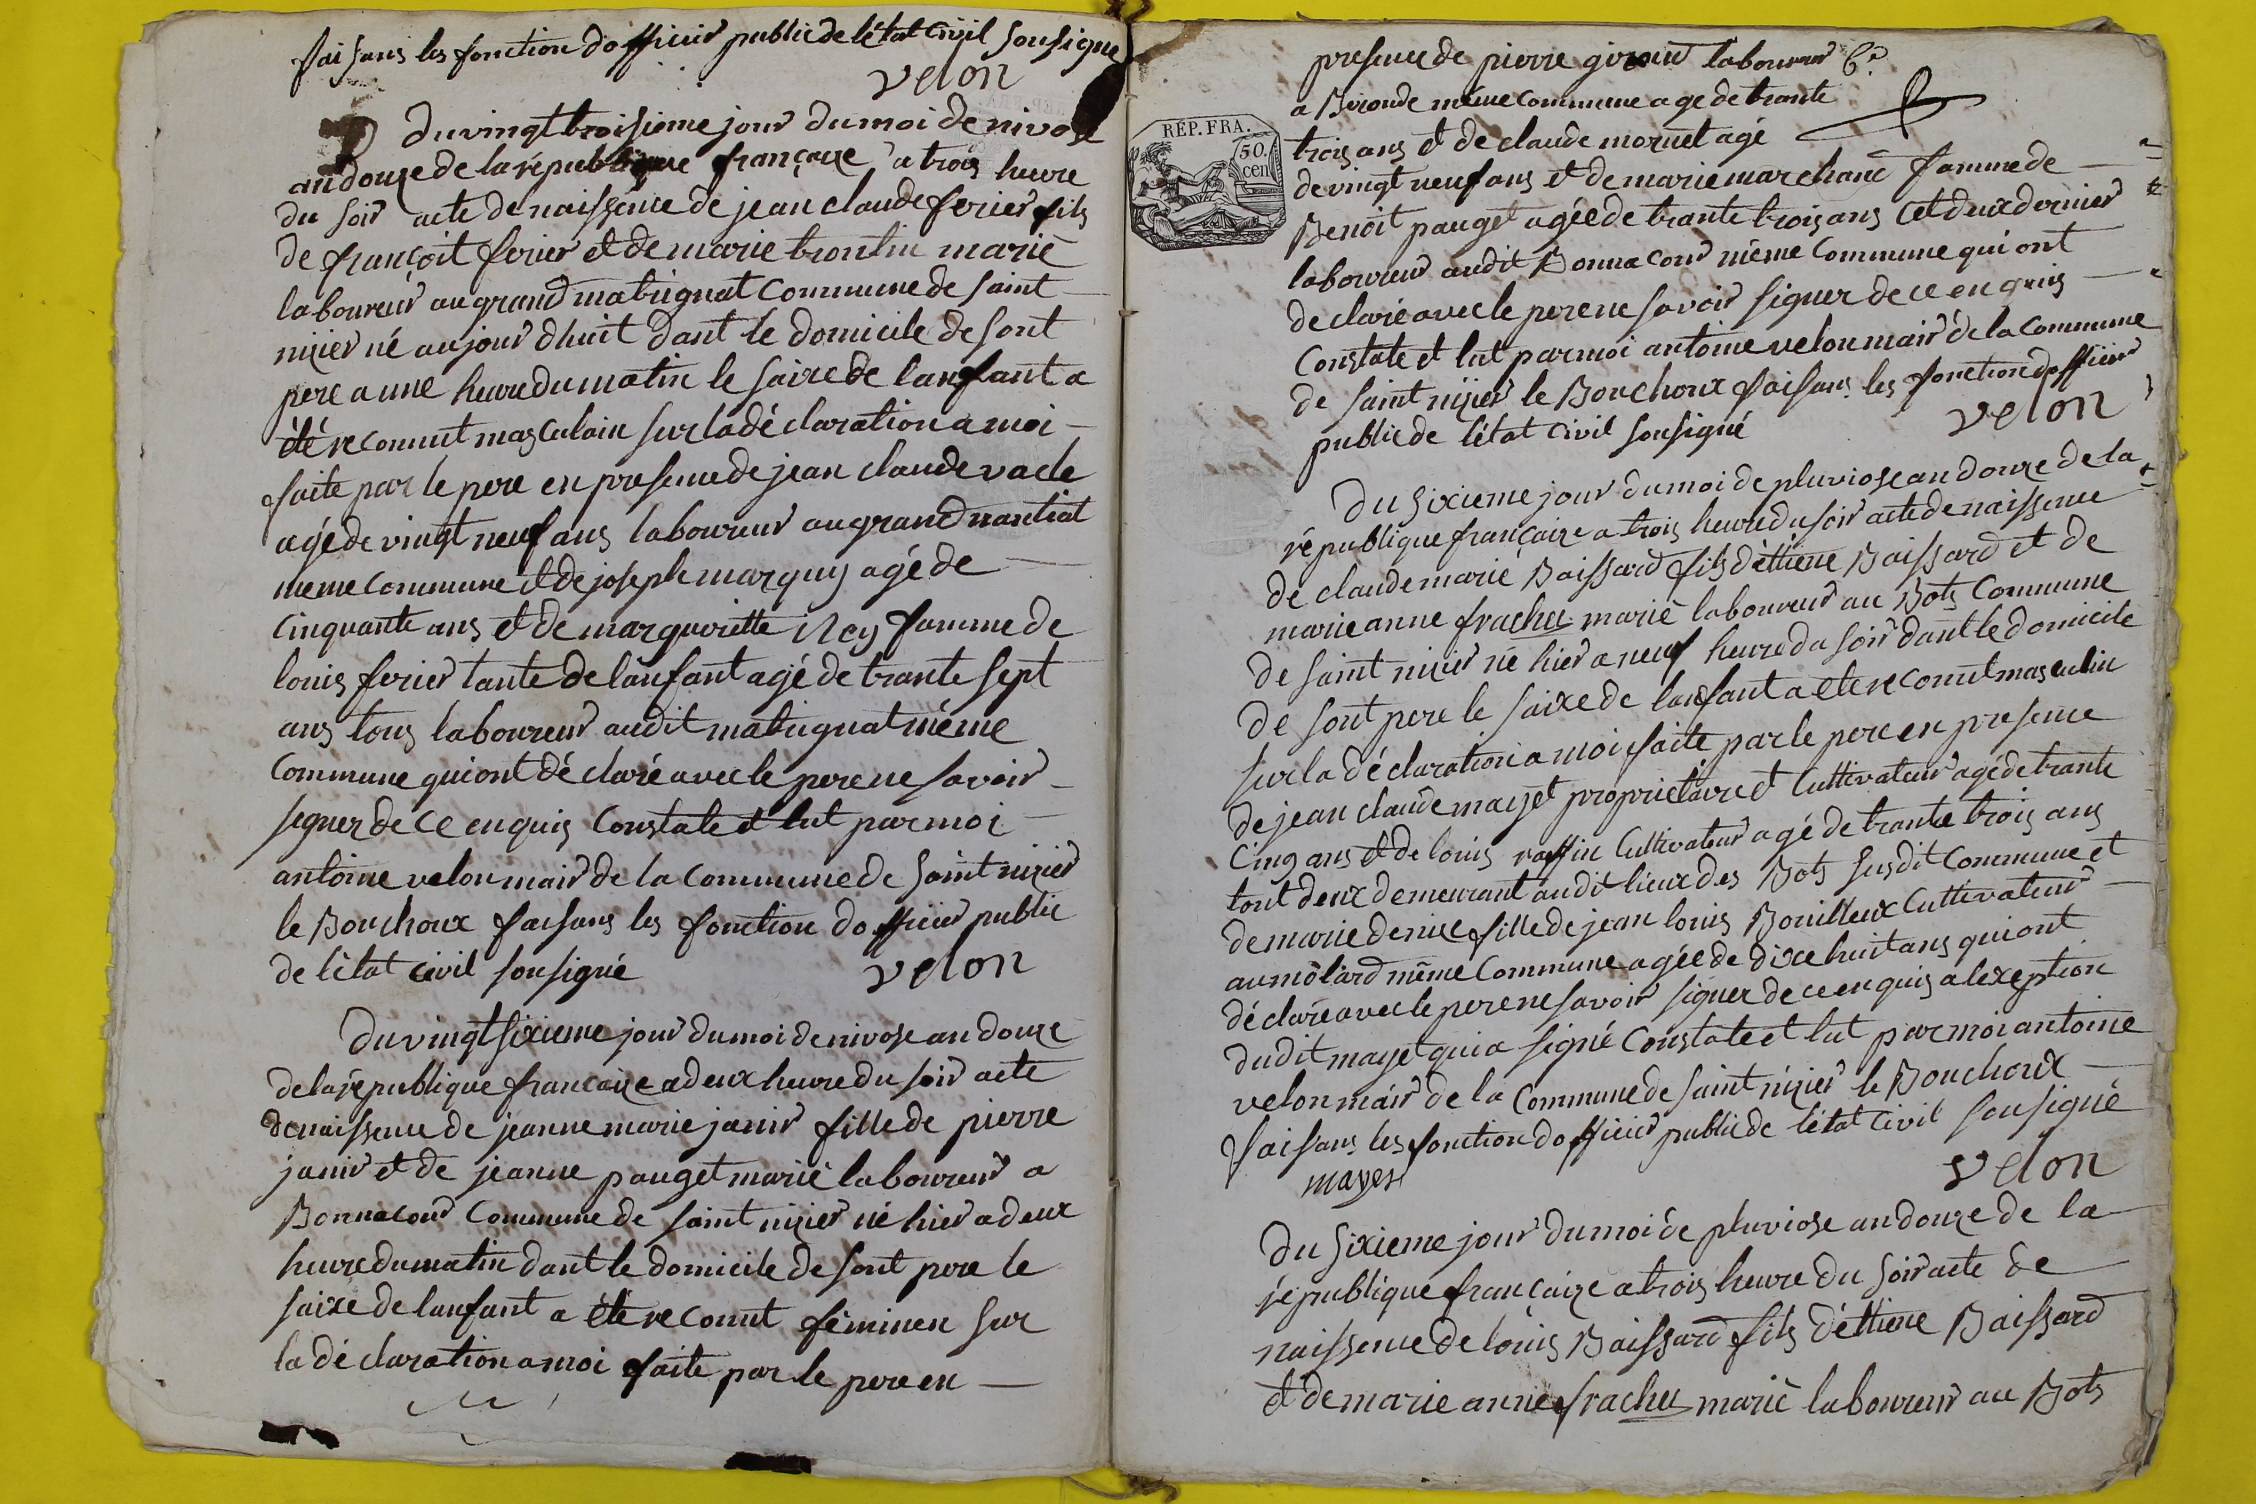 faisans les fonction dofficier public de létat Civil sousigné
velon
du vingt troisieme jour du moi de nivose
an douze de la republique françaize a trois heure
du soir acte de naissence de jean claude ferier fils
de françoit ferier et de marie trontin marié
laboureur au grand matrignat Commune de saint
nizier né aujour dhuit dant le domicile de sont
pere a une heure du matin le saixe de lanfant a
été reconnut masculain sur la déclaration a moi
faite par le pere en presence de jean claude vacle
agé de vingt neuf ans laboureur au grand nantiat
meme Commune et de joseph marquis agé de
Cinquante ans et de marguerite Rey famme de
louis ferier tante de lanfant agé de trante sept
ans tous laboureur audit matrignat même
Commune qui ont déclaré avec le pere ne savoir
signer de ce enquis Constate et lut par moi
antoine velon mair de la Commune de saint nizier
le Bouchoux faisans les fonction dofficier public
de létat civil sousigné
velon
du vingt sixieme jour du moi de nivose an douze
de la république françaize a deux heure du soir acte
de naissence de jeanne marie janir fille de pierre
janir et de jeanne pauget marié laboureur a
Bonnacour Commune de saint nizier né hier a deux
heure du matin dant le domicile de sont pere le
saixe de lanfant a été reconnut féminen sur
la déclaration a moi faite par le pere en
presence de pierre giroud laboureur
a Bironde même Commune age de trante
RÉP. FRA.
50.
cen
trois ans et de claude moruel agé
de vingt neuf ans et de marie marchand famme de
Benoit pauget agée de trante trois ans Cet deux dernier
laboureur audit Bonnacour même Commune qui ont
declaré avec le pere ne savoir signer de ce enquis
Constate et lut par moi antoine velon mair de la Commune
de saint nizier le Bouchoux faisans les fonction dofficier
public de létat Civil sousigné
velon
du sixieme jour du moi de pluviose an douze de la
république françaize a trois heure du soir acte de naissence
de claude marie Baissard fils déttiene Baissard et de
marie anne frachet marié laboureur au Bots Commune
de saint nizier né hier a neuf heure du soir dant le domicile
de sont pere le saixe de lanfant a été reconnut masculin
sur la déclaration a moi faite par le pere en presence
de jean claude mayet proprietaire et Cultivateur agé de trante
Cinq ans et de louis raffin Cultivateur agé de trante trois ans
tout deux demeurant audit lieux des Bots susdit Commune et
de marie denise fille de jean louis Bouilleux Cultivateur
au molard même Commune agée de dixe huit ans qui ont
déclaré avec le pere ne savoir signer de ce enquis a lexeption
dudit mayet qui a signé Constate et lut par moi antoine
velon mair de la Commune de saint nizier le Bouchoux
faisans les fonction dofficier public de létat Civil sousigné
mayet
velon
du sixieme jour du moi de pluviose an douze de la
république françaize a trois heure du soir acte de
naissence de louis Baissard fils déttiene Baissard
et de marie anne frachet marié laboureur au Bots